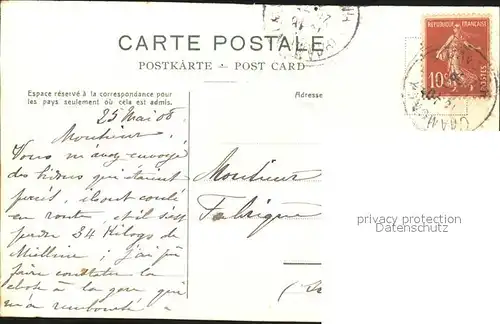 CARTE POSTALE
POSTKARTE – POST CARD
Espace réservé à la correspondance pour
les pays seulement où cela est admis.
Adresse
RÉPUBLIQUE FRANÇAISE
10c
POSTES
25 Mai 08
Monsieur,
Vous m'avez envoyé
des bidons qui étaient
percés, ils ont coulé
en route, et il s'est
perdu 34 Kilogs de
Mielline ; j'ai fait
faire constater la
chose à la gare qui
m'a remboursé
Monsieur
Fabrique
privacy protection
Datenschutz